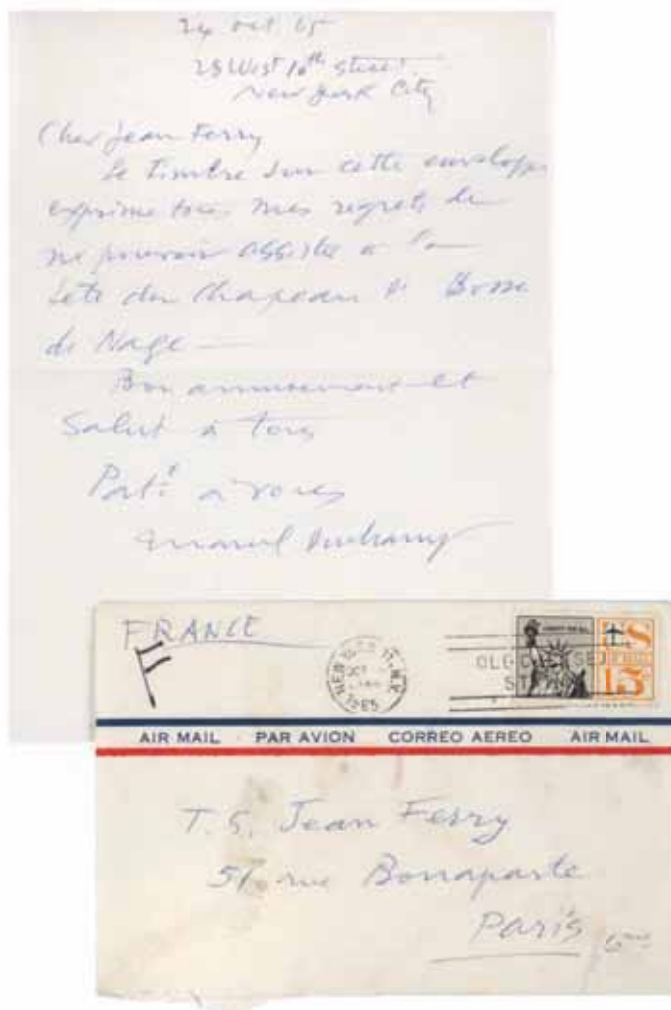 24 oct 65
28 West 10th Street
New York City
Cher Jean Ferry
Le timbre sur cette enveloppe
exprime tous mes regrets de
ne pouvoir assister à la
fête du Chapeau de Bosse
de Nage —
Bon amusement et
Salut à tous
Pat.t à vous
Marcel Duchamp
FRANCE
NEW YORK N.Y.
OCT
1965
US
15c
AIR MAIL PAR AVION CORREO AEREO AIR MAIL
T.S. Jean Ferry
57 rue Bonaparte
Paris 6me